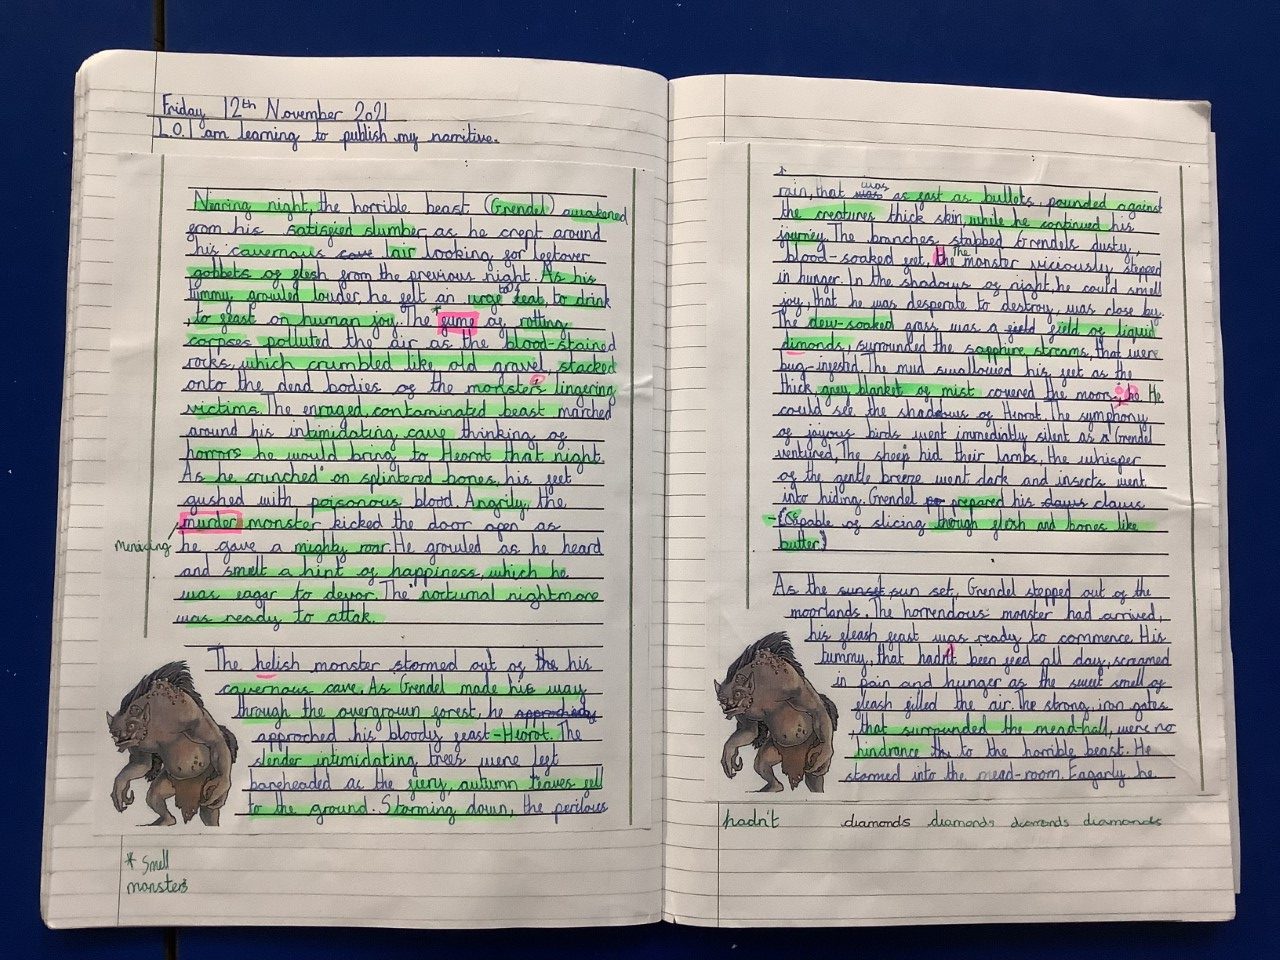 Friday 12th November 2021
L.O. I am learning to publish my narritive.
Nearing night, the horrible beast (Grendel) awakened
from his satisfied slumber as he crept around
his cavernous cave lair looking for leftover
gobbets of flesh from the previous night. As his
tummy growled louder, he felt an urge to eat, to drink
, to feast on human joy. The *fume of rotting
corpses polluted the air as the blood-stained
rocks, which crumbled like old gravel, stacked
onto the dead bodies of the monsters lingering
victims. The enraged, contaminated beast marched
around his intimidating cave thinking of
horrors he would bring to Heorot that night.
As he crunched on splintered bones, his feet
gushed with poisonous blood. Angrily the
murder monster kicked the door open as
minacing he gave a mighty roar. He growled as he heard
and smelt a hint of happiness, which he
was eagar to devor. The nocturnal nightmare
was ready to attak.
The helish monster stormed out of the his
cavernous cave. As Grendel made his way
through the overgrown forest, he approched
approched his bloody feast-Heorot. The
slender intimidating trees were left
bareheaded as the fiery, autumn leaves fell
to the ground. Storming down, the perilous
* Smell
monsters
rain, that was was as fast as bullets, pounded against
the creatures thick skin, while he continued his
journey. The branches stabbed Grendels dusty,
blood-soaked feet, the The monster viciously stepped
in hunger. In the shadows of night, he could smell
joy, that he was desperate to destroy, was close by.
The dew-soaked grass was a field field of liquid
dimonds, surrounded the sapphire streams, that were
bug-infested. The mud swallowed his feet as the
thick, grey blanket of mist covered the moon, he He
could see the shadows of Heorot. The symphony
of joyous birds went immediatly silent as Grendel
ventured, The sheep hid their lambs, the whisper
of the gentle breeze went dark and insects went
into hiding. Grendel pr prepared his claws claws
-(Capable of slicing though flesh and bones like
butter)
As the sunset sun set, Grendel stepped out of the
moorlands. The horrendous monster had arrived,
his fleash feast was ready to commence. His
tummy, that hadn't been feed all day, screamed
in pain and hunger as the sweet smell of
fleash filled the air. The strong, iron gates
, that surrounded the mead-hall, were no
hindrance th to the horrible beast. He
stormed into the mead-room. Eagarly he
hadn't diamonds diamonds diamonds diamonds